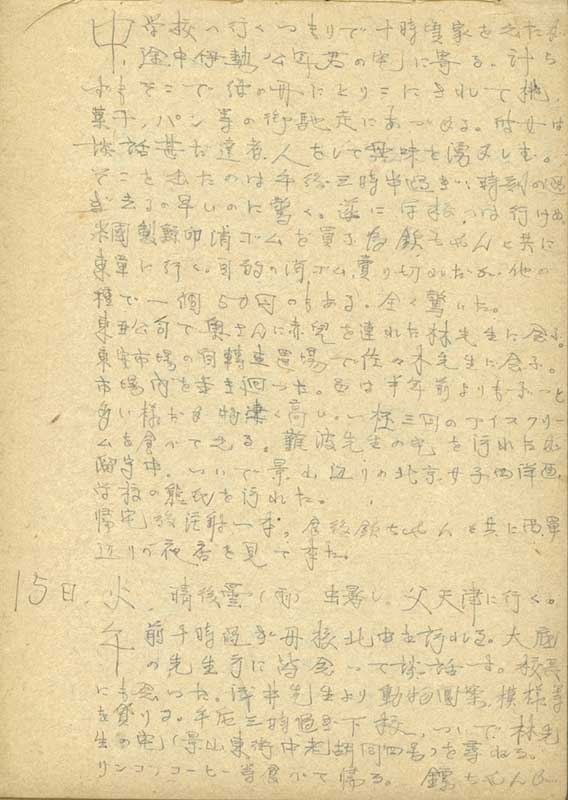 中学校へ行くつもりで十時頃家を出たが
途中伊勢 君の宅に寄る。計ら
ずもそこで彼の母にとりこにされて桃、
菓子、パン等の御馳走にあづかる。彼女は
談話甚だ達者、人をして興味を湧かしむ。
そこを出たのは午後三時半過ぎ、時刻の過
ぎ去るの早いのに驚く。遂に学校へは行けぬ。
米国製 印消ゴムを買う為 ちゃんと共に
東単に行く。目的の消ゴム、賣り切れたが、他の
種で一個50円のもある。全く驚いた。
東亜公司で奥さんに赤児を連れた林先生に会ふ。
東安市場の自転車置場で佐々木先生に会ふ。
市場内を歩き廻った。 は半年前よりもずっと
多い様だが物凄く高い。一杯三円のアイスクリー
ムを食べて出る。難波先生の宅を訪れたが
留守中。ついで景山辺りの北京女子西洋画
学校の熊氏を訪れた。
帰宅後注射一本。食後 ちゃんと共に西単
辺りの夜店を見て来た。
15日、火、晴後曇(雨) 蒸暑し、父天津に行く。
午前十時過ぎ母校北中を訪れる。大底
の先生方に皆会って談話す。校長
にも会った。浅井先生より動物図案、模様等
を貰りる。午后三時過ぎ下校、ついで林先
生の宅(景山東街中老胡同四号)を尋ねる。
リンゴ、コーヒー等食べて帰る。 ちゃん